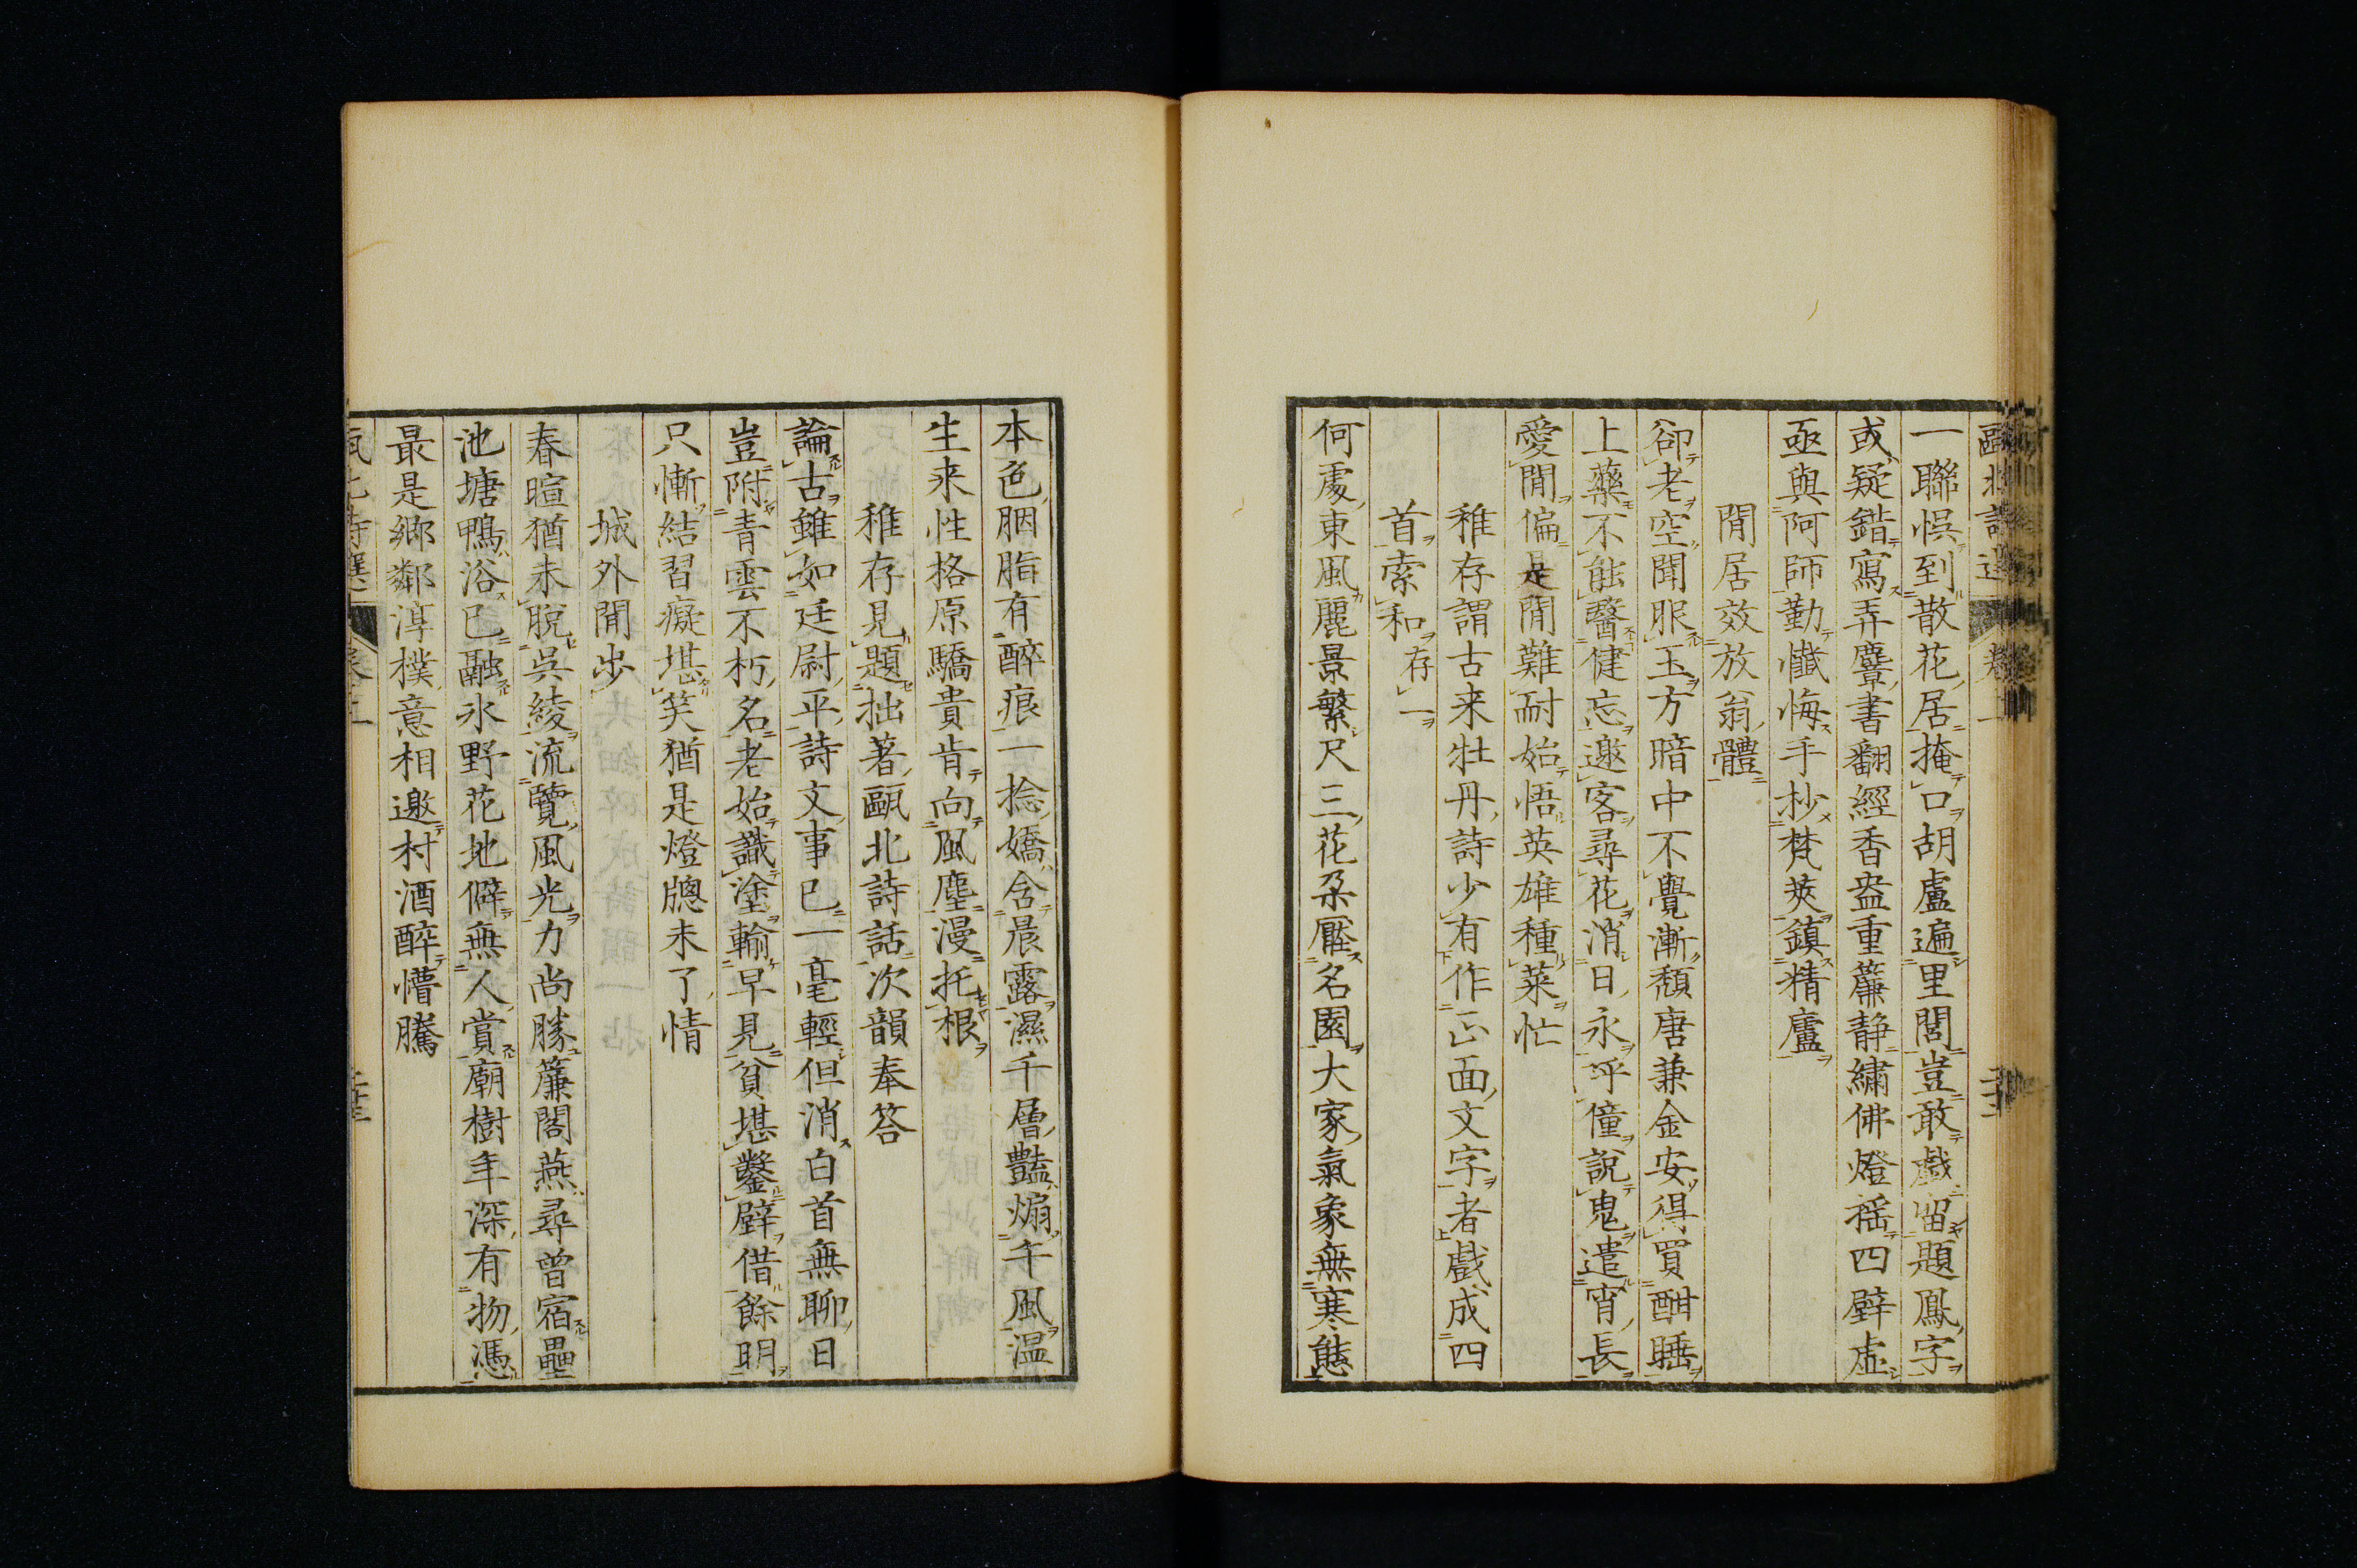 甌北詩選 卷二
一聯悞到散花居掩口胡盧遍里閭豈敢戲留題鳳字
或疑錯寫弄麞書翻經香盎重簾静繡佛燈搖四壁虛
亟與阿師勤懺悔手抄梵莢鎮精廬
閒居效放翁體
卻老空聞服玉方暗中不覺漸頽唐兼金安得買酣睡
上藥不能醫健忘邀客尋花消日永呼僮説鬼遣宵長
愛閒偏是閒難耐始悟英雄種菜忙
稚存謂古来牡丹詩少有作正面文字者戲成四
首索和存一
何處東風麗景繁尺三花朶壓名園大家氣象無寒態
本色胭脂有醉痕一捻嬌含晨露濕千層豔煽午風温
生来性格原驕貴肯向風塵漫托根
稚存見題拙著甌北詩話次韻奉答
論古雖如廷尉平詩文事已一毫輕但消白首無聊日
豈附青雲不朽名老始識塗輸早見貧堪鑿壁借餘明
只慚結習癡堪笑猶是燈牕未了情
城外閒步
春暄猶未脫吳綾流覽風光力尚勝簾閣燕尋曾宿壘
池塘鴨浴已融冰野花地僻無人賞廟樹年深有物憑
最是鄉鄰淳樸意相邀村酒醉懵騰